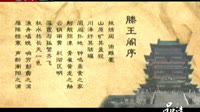 滕王阁序
披绣闼 俯雕甍
山原旷其盈视
川泽纡其骇瞩
闾阎扑地 钟鸣鼎食之家
云销雨霁 彩彻区明
落霞与孤鹜齐飞
秋水共长天一色
渔舟唱晚 响穷彭蠡之滨
雁阵惊寒 声断衡阳之浦